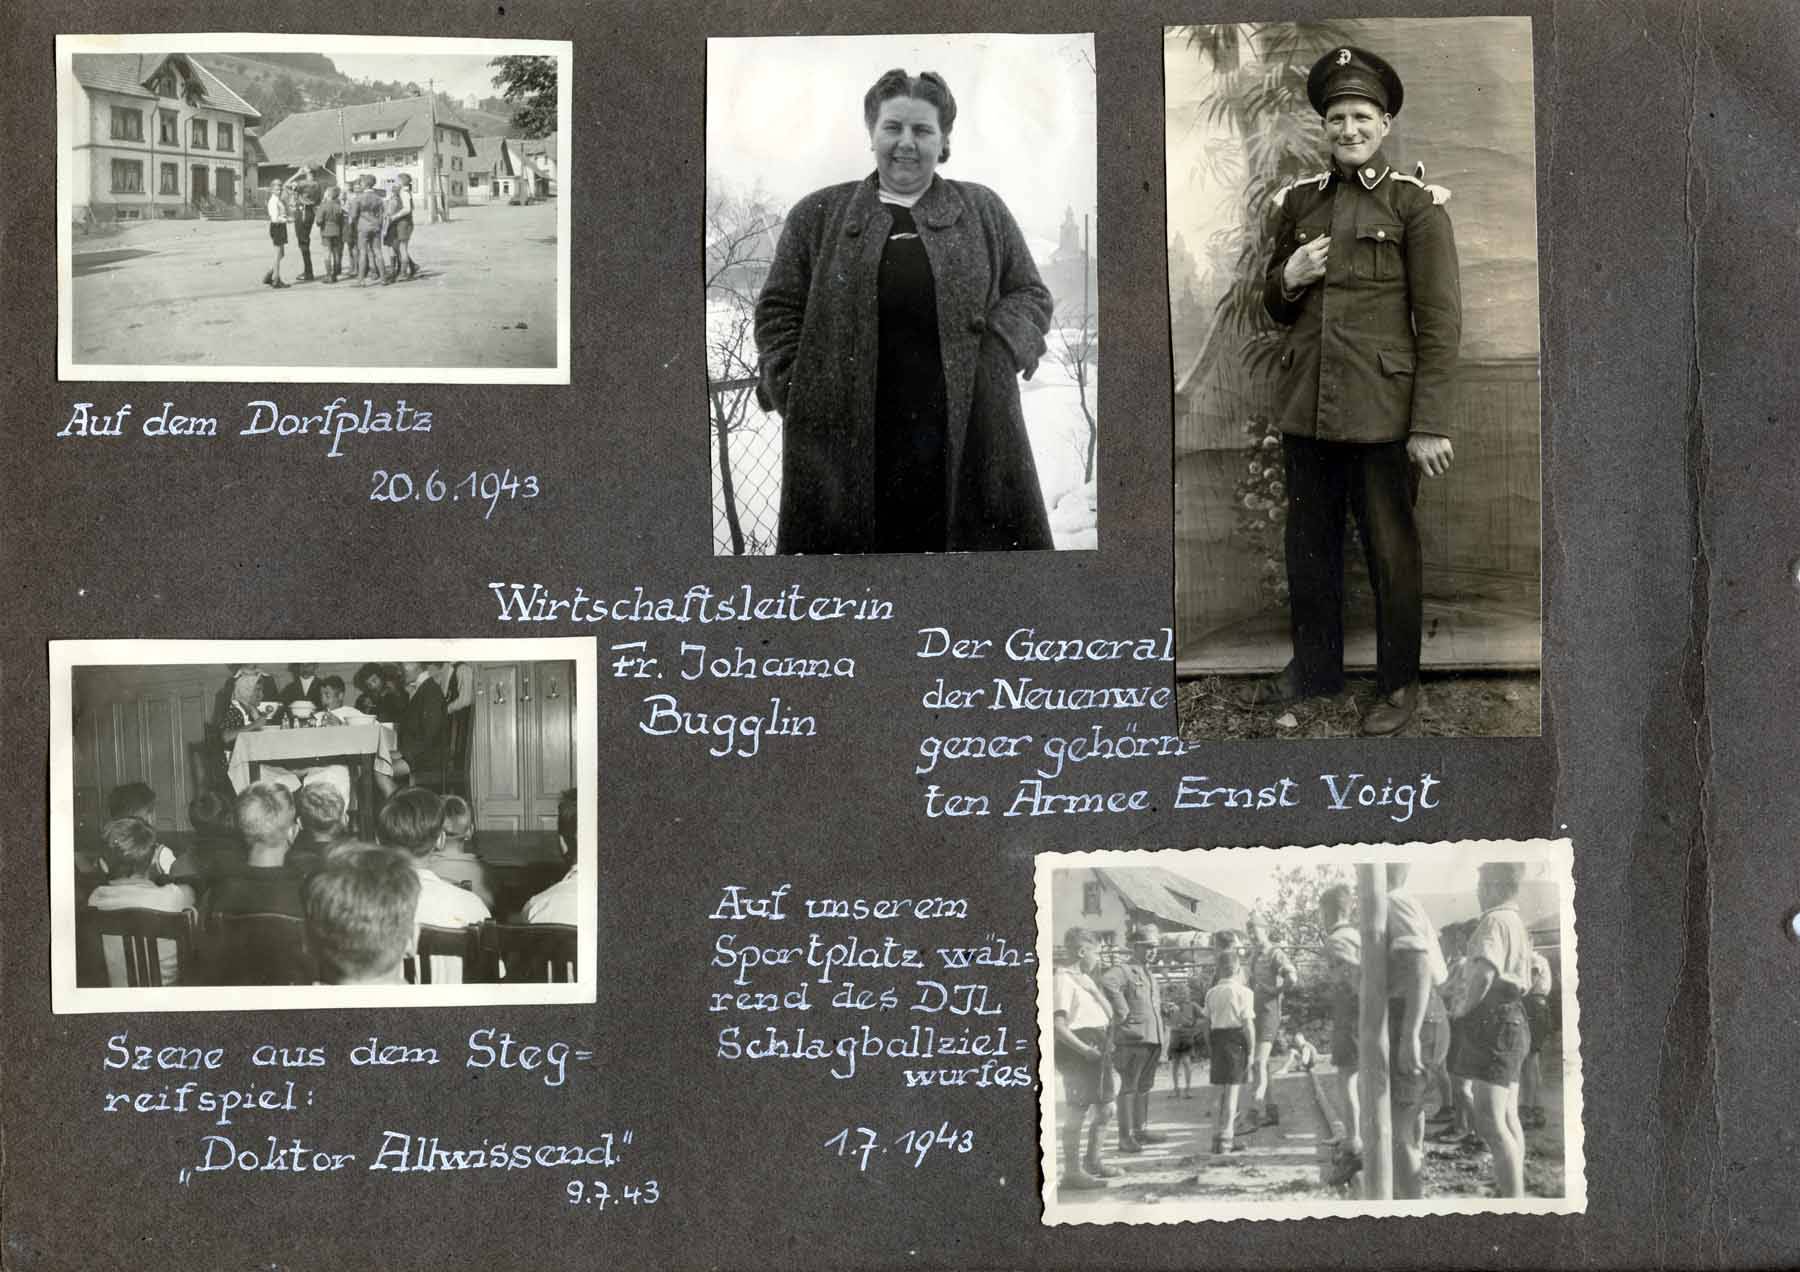 Auf dem Dorfplatz
20.6.1943
Wirtschaftsleiterin
Fr. Johanna
Bugglin
Der General
der Neuenwe
gener gehörn=
ten Armee Ernst Voigt
Szene aus dem Steg=
reifspiel:
„Doktor Allwissend."
9.7.43
Auf unserem
Sportplatz wäh=
rend des DJL
Schlagballziel=
wurfes.
1.7.1943